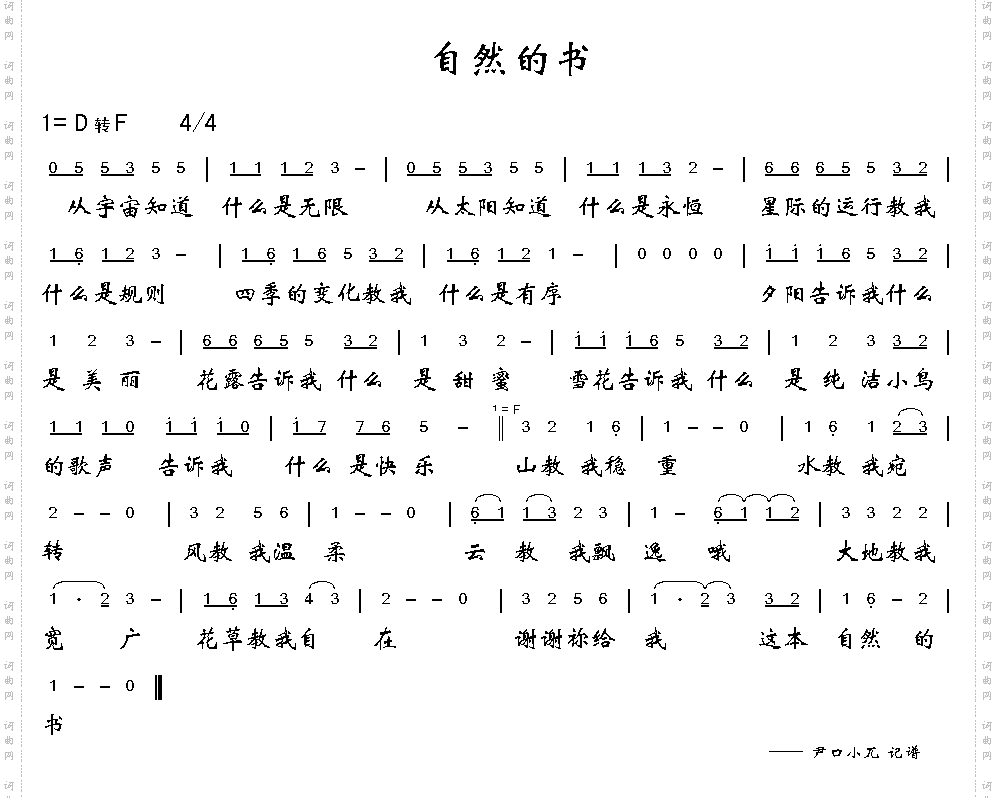 自然的书
1= D 转 F 4/4
0 5 5 3 5 5 | 1 1 1 2 3 – | 0 5 5 3 5 5 | 1 1 1 3 2 – | 6 6 6 5 5 3 2 |
从宇宙知道 什么是无限 从太阳知道 什么是永恒 星际的运行教我
1 6 1 2 3 – | 1 6 1 6 5 3 2 | 1 6 1 2 1 – | 0 0 0 0 | 1 1 1 6 5 3 2 |
什么是规则 四季的变化教我 什么是有序 夕阳告诉我什么
1 2 3 – | 6 6 6 5 5 3 2 | 1 3 2 – | 1 1 1 6 5 3 2 | 1 2 3 3 2 |
是 美 丽 花露告诉我 什么 是 甜 蜜 雪花告诉我 什么 是 纯 洁小鸟
1=F
1 1 1 0 1 1 1 0 | 1 7 7 6 5 – || 3 2 1 6 | 1 – – 0 | 1 6 1 2 3 |
的歌声 告诉我 什么 是快 乐 山教 我稳 重 水教 我宛
2 – – 0 | 3 2 5 6 | 1 – – 0 | 6 1 1 3 2 3 | 1 – 6 1 1 2 | 3 3 2 2 |
转 风教 我温 柔 云 教 我飘 逸 哦 大地教我
1 · 2 3 – | 1 6 1 3 4 3 | 2 – – 0 | 3 2 5 6 | 1 · 2 3 3 2 | 1 6 – 2 |
宽 广 花草教我自 在 谢谢祢给 我 这本 自然 的
1 – – 0
书
—— 尹口小瓦 记谱
词曲网